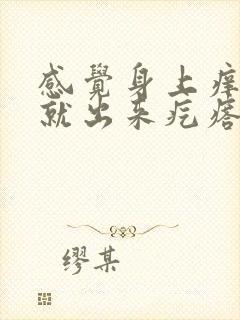 感覺身上痒
就出来疙瘩
缪某